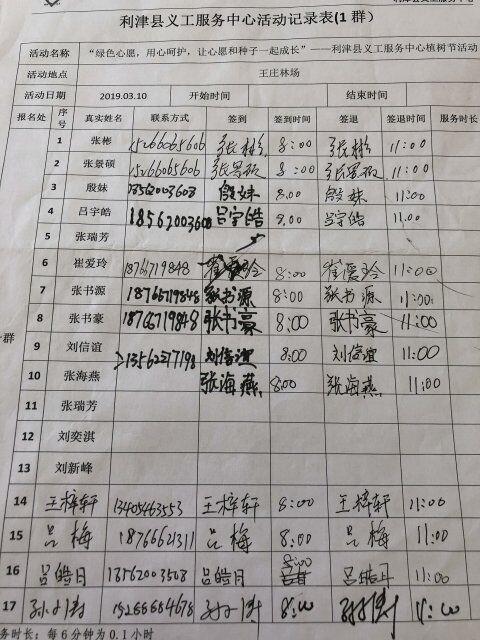 利津县义工服务中心
利津县义工服务中心活动记录表(1 群)
活动名称 “绿色心愿，用心呵护，让心愿和种子一起成长”——利津县义工服务中心植树节活动
活动地点 王庄林场
活动日期 2019.03.10 开始时间 结束时间
报名处 序号 真实姓名 联系方式 签到 签到时间 签退 签退时间 服务时长
1 张彬 15266065606 张彬 8:00 张彬 11:00
2 张景硕 15266065606 张景硕 8:00 张景硕 11:00
3 殷妹 18562003608 殷妹 8.00 殷妹 11:00
4 吕宇皓 18562003608 吕宇皓 8.00 吕宇皓 11.00
5 张瑞芳
6 崔爱玲 18766719848 崔爱玲 8:00 崔爱玲 11:00
7 张书源 18766719848 张书源 8:00 张书源 11:00
8 张书豪 18766719848 张书豪 8:00 张书豪 11:00
群
9 刘信谊 13562277198 刘信谊 8:00 刘信谊 11:00
10 张海燕 张海燕 8:00 张海燕 11:00
11 张瑞芳
12 刘奕淇
13 刘新峰
14 王梓轩 13405463553 王梓轩 8:00 王梓轩 11:00
15 吕梅 18766621311 吕梅 8:00 吕梅 11:00
16 吕皓月 13562003508 吕皓月 8:00 吕皓月 11:00
17 8:00 11:00
务时长：每 6 分钟为 0.1 小时